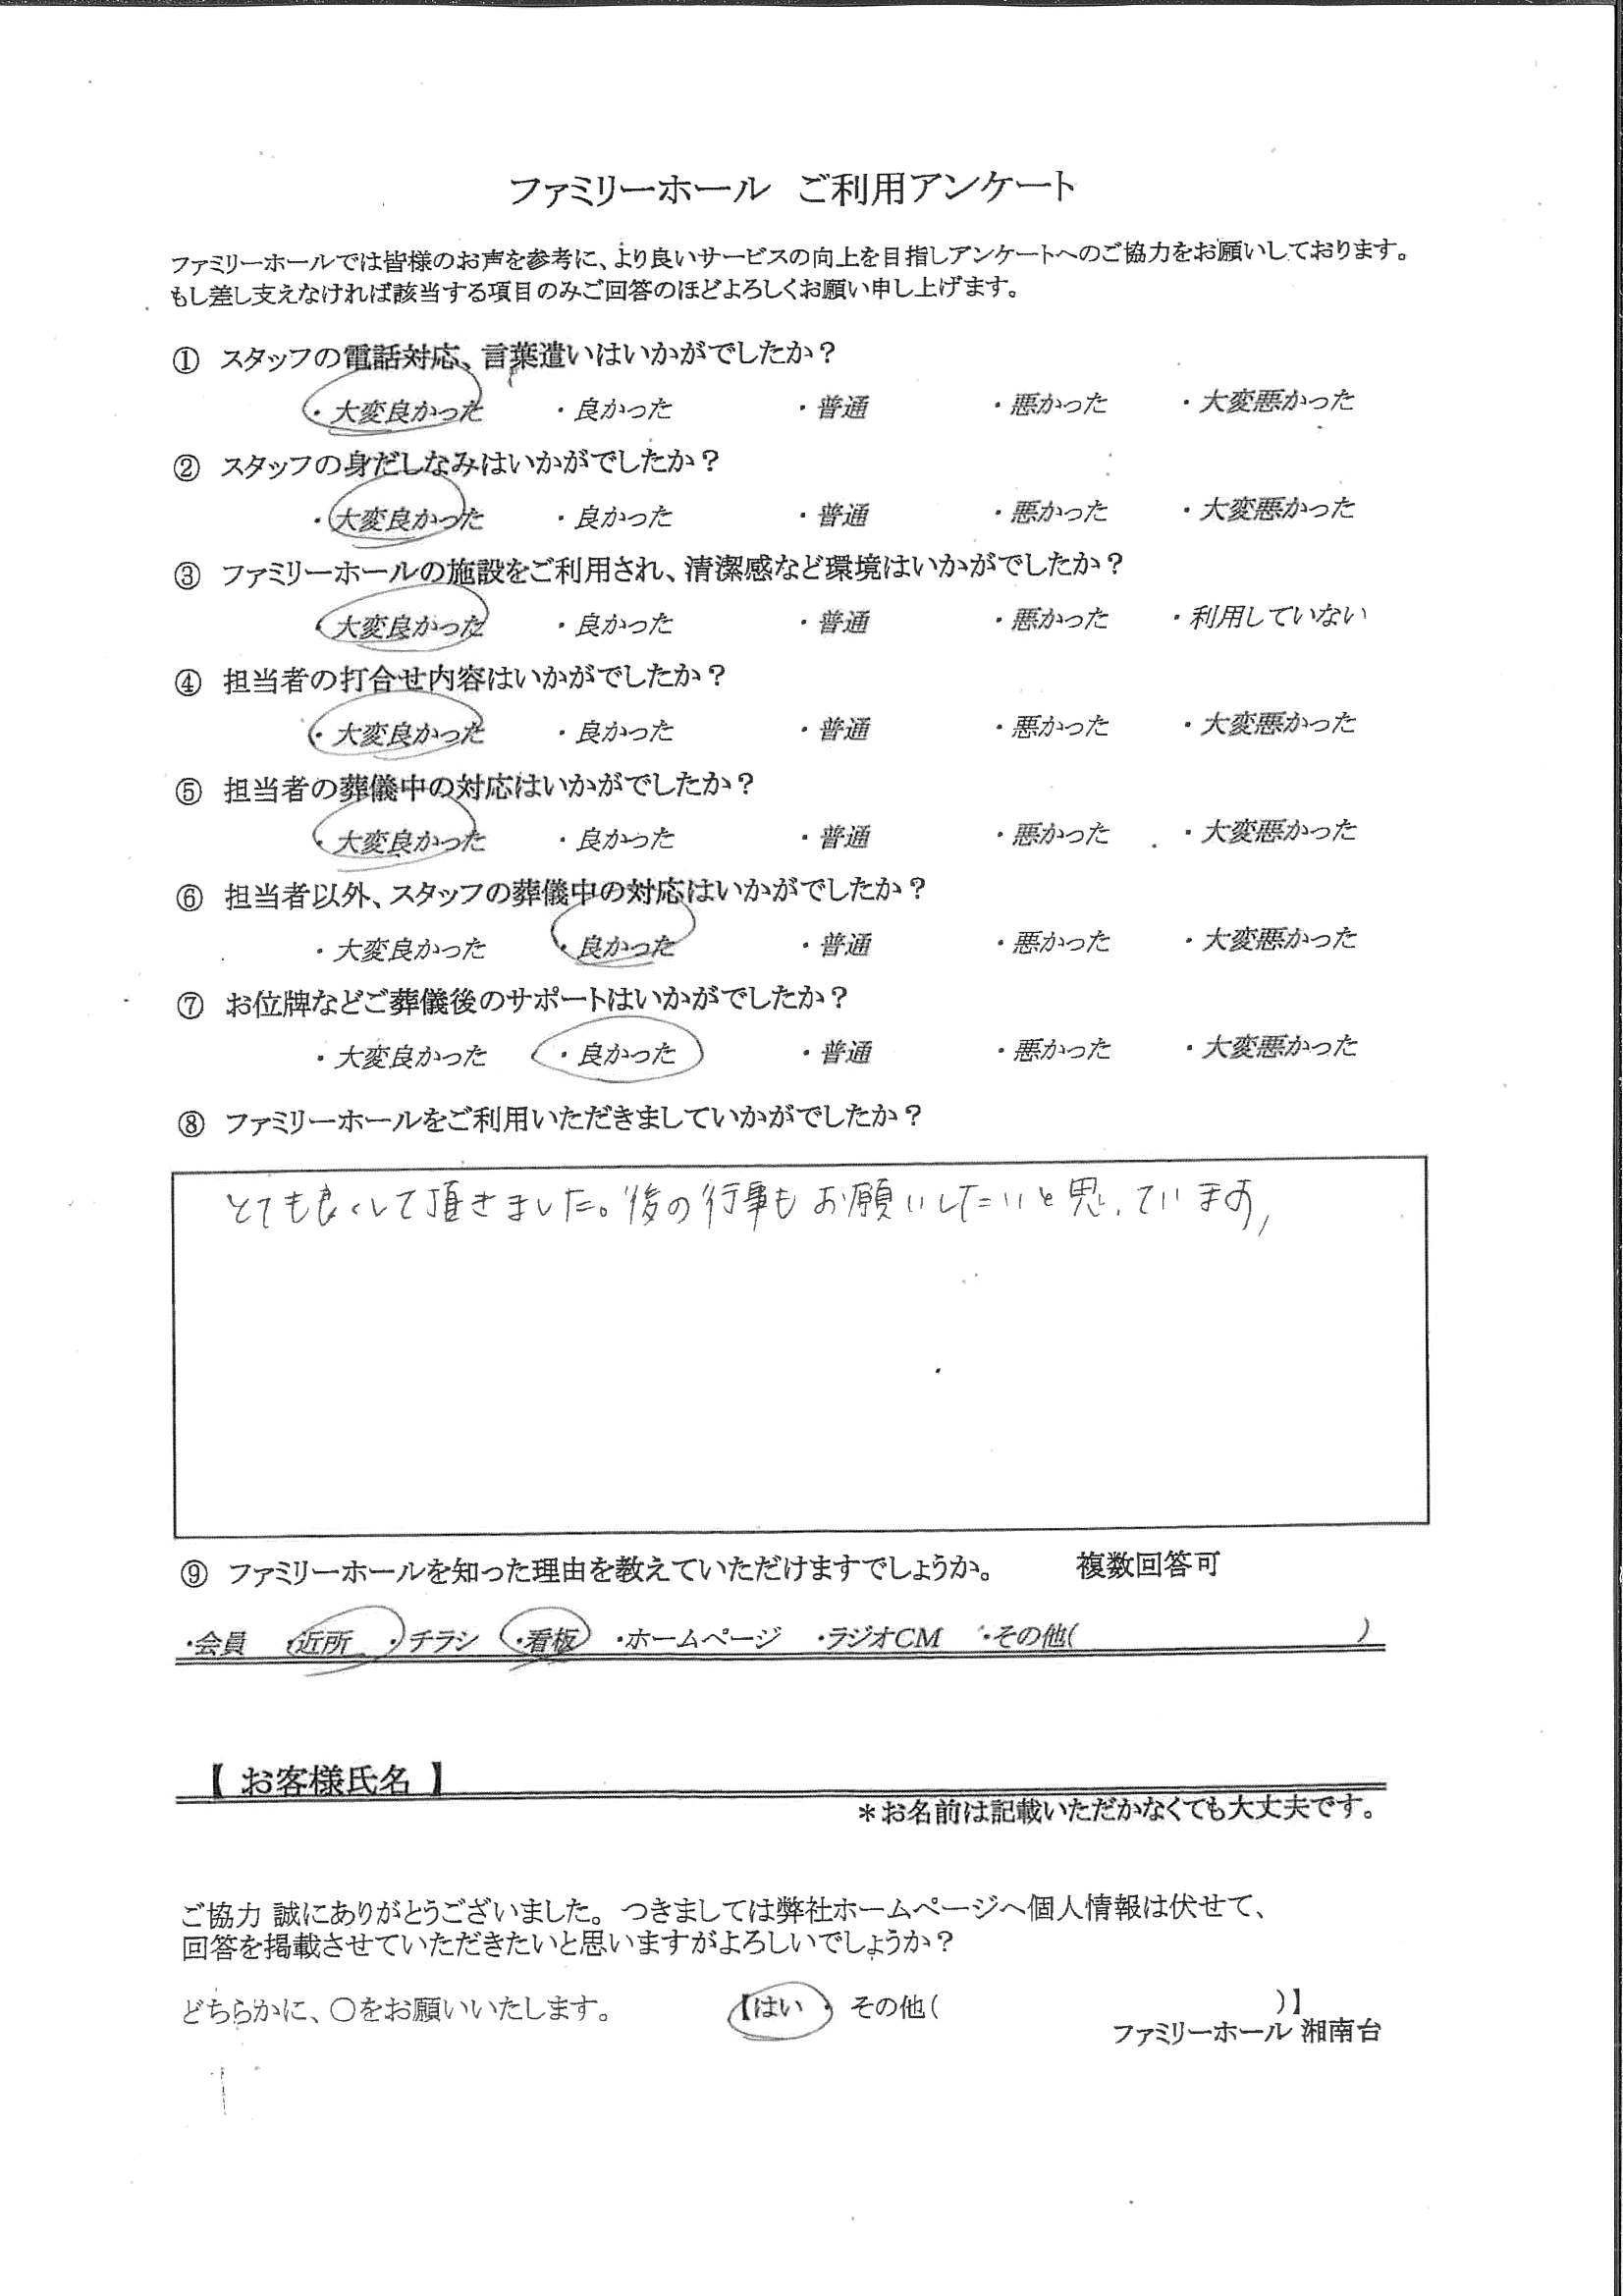 ファミリーホール ご利用アンケート
ファミリーホールでは皆様のお声を参考に、より良いサービスの向上を目指しアンケートへのご協力をお願いしております。
もし差し支えなければ該当する項目のみご回答のほどよろしくお願い申し上げます。
① スタッフの電話対応、言葉遣いはいかがでしたか？
・大変良かった ・良かった ・普通 ・悪かった ・大変悪かった
② スタッフの身だしなみはいかがでしたか？
・大変良かった ・良かった ・普通 ・悪かった ・大変悪かった
③ ファミリーホールの施設をご利用され、清潔感など環境はいかがでしたか？
・大変良かった ・良かった ・普通 ・悪かった ・利用していない
④ 担当者の打合せ内容はいかがでしたか？
・大変良かった ・良かった ・普通 ・悪かった ・大変悪かった
⑤ 担当者の葬儀中の対応はいかがでしたか？
・大変良かった ・良かった ・普通 ・悪かった ・大変悪かった
⑥ 担当者以外、スタッフの葬儀中の対応はいかがでしたか？
・大変良かった ・良かった ・普通 ・悪かった ・大変悪かった
⑦ お位牌などご葬儀後のサポートはいかがでしたか？
・大変良かった ・良かった ・普通 ・悪かった ・大変悪かった
⑧ ファミリーホールをご利用いただきましていかがでしたか？
とても良くして頂きました。後の行事もお願いしたいと思っています,
⑨ ファミリーホールを知った理由を教えていただけますでしょうか。 複数回答可
・会員 ・近所 ・チラシ ・看板 ・ホームページ ・ラジオCM ・その他( )
【 お客様氏名 】
＊お名前は記載いただかなくても大丈夫です。
ご協力 誠にありがとうございました。つきましては弊社ホームページへ個人情報は伏せて、
回答を掲載させていただきたいと思いますがよろしいでしょうか？
どちらかに、〇をお願いいたします。 【はい ・ その他( )】
ファミリーホール 湘南台